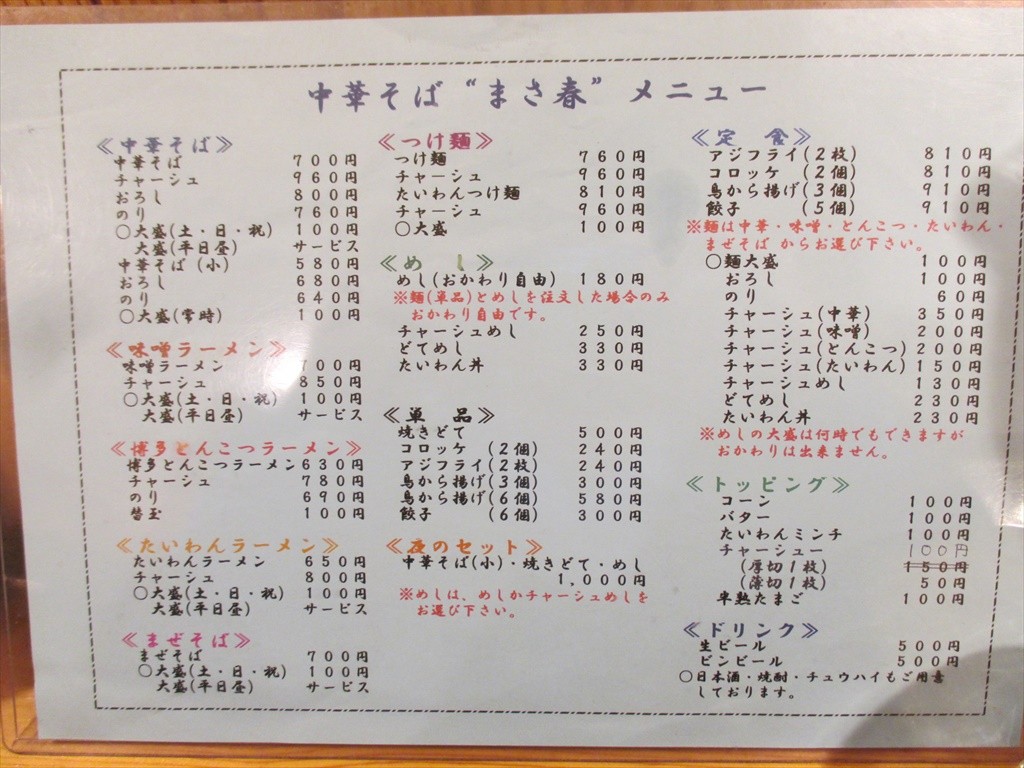 中華そば“まさ春”メニュー
≪中華そば≫
中華そば 700円
チャーシュ 960円
おろし 800円
のり 760円
○大盛(土・日・祝) 100円
大盛(平日昼) サービス
中華そば(小) 580円
おろし 680円
のり 640円
○大盛(常時) 100円
≪味噌ラーメン≫
味噌ラーメン 700円
チャーシュ 850円
○大盛(土・日・祝) 100円
大盛(平日昼) サービス
≪博多とんこつラーメン≫
博多とんこつラーメン 630円
チャーシュ 780円
のり 690円
替玉 100円
≪たいわんラーメン≫
たいわんラーメン 650円
チャーシュ 800円
○大盛(土・日・祝) 100円
大盛(平日昼) サービス
≪まぜそば≫
まぜそば 700円
○大盛(土・日・祝) 100円
大盛(平日昼) サービス
≪つけ麺≫
つけ麺 760円
チャーシュ 960円
たいわんつけ麺 810円
チャーシュ 960円
○大盛 100円
≪めし≫
めし(おかわり自由) 180円
※麺(単品)とめしを注文した場合のみ
おかわり自由です。
チャーシュめし 250円
どてめし 330円
たいわん丼 330円
≪単品≫
焼きどて 500円
コロッケ (2個) 240円
アジフライ(2枚) 240円
鳥から揚げ(3個) 300円
鳥から揚げ(6個) 580円
餃子 (6個) 300円
≪夜のセット≫
中華そば(小)・焼きどて・めし
1,000円
※めしは、めしかチャーシュめしを
お選び下さい。
≪定食≫
アジフライ(2枚) 810円
コロッケ (2個) 810円
鳥から揚げ(3個) 910円
餃子 (5個) 910円
※麺は中華・味噌・とんこつ・たいわん・
まぜそば からお選び下さい。
○麺大盛 100円
おろし 100円
のり 60円
チャーシュ(中華) 350円
チャーシュ(味噌) 200円
チャーシュ(とんこつ) 200円
チャーシュ(たいわん) 150円
チャーシュめし 130円
どてめし 230円
たいわん丼 230円
※めしの大盛は何時でもできますが
おかわりは出来ません。
≪トッピング≫
コーン 100円
バター 100円
たいわんミンチ 100円
チャーシュー 100円
(厚切1枚) 150円
(薄切1枚) 50円
半熟たまご 100円
≪ドリンク≫
生ビール 500円
ビンビール 500円
○日本酒・焼酎・チュウハイもご用意
しております。